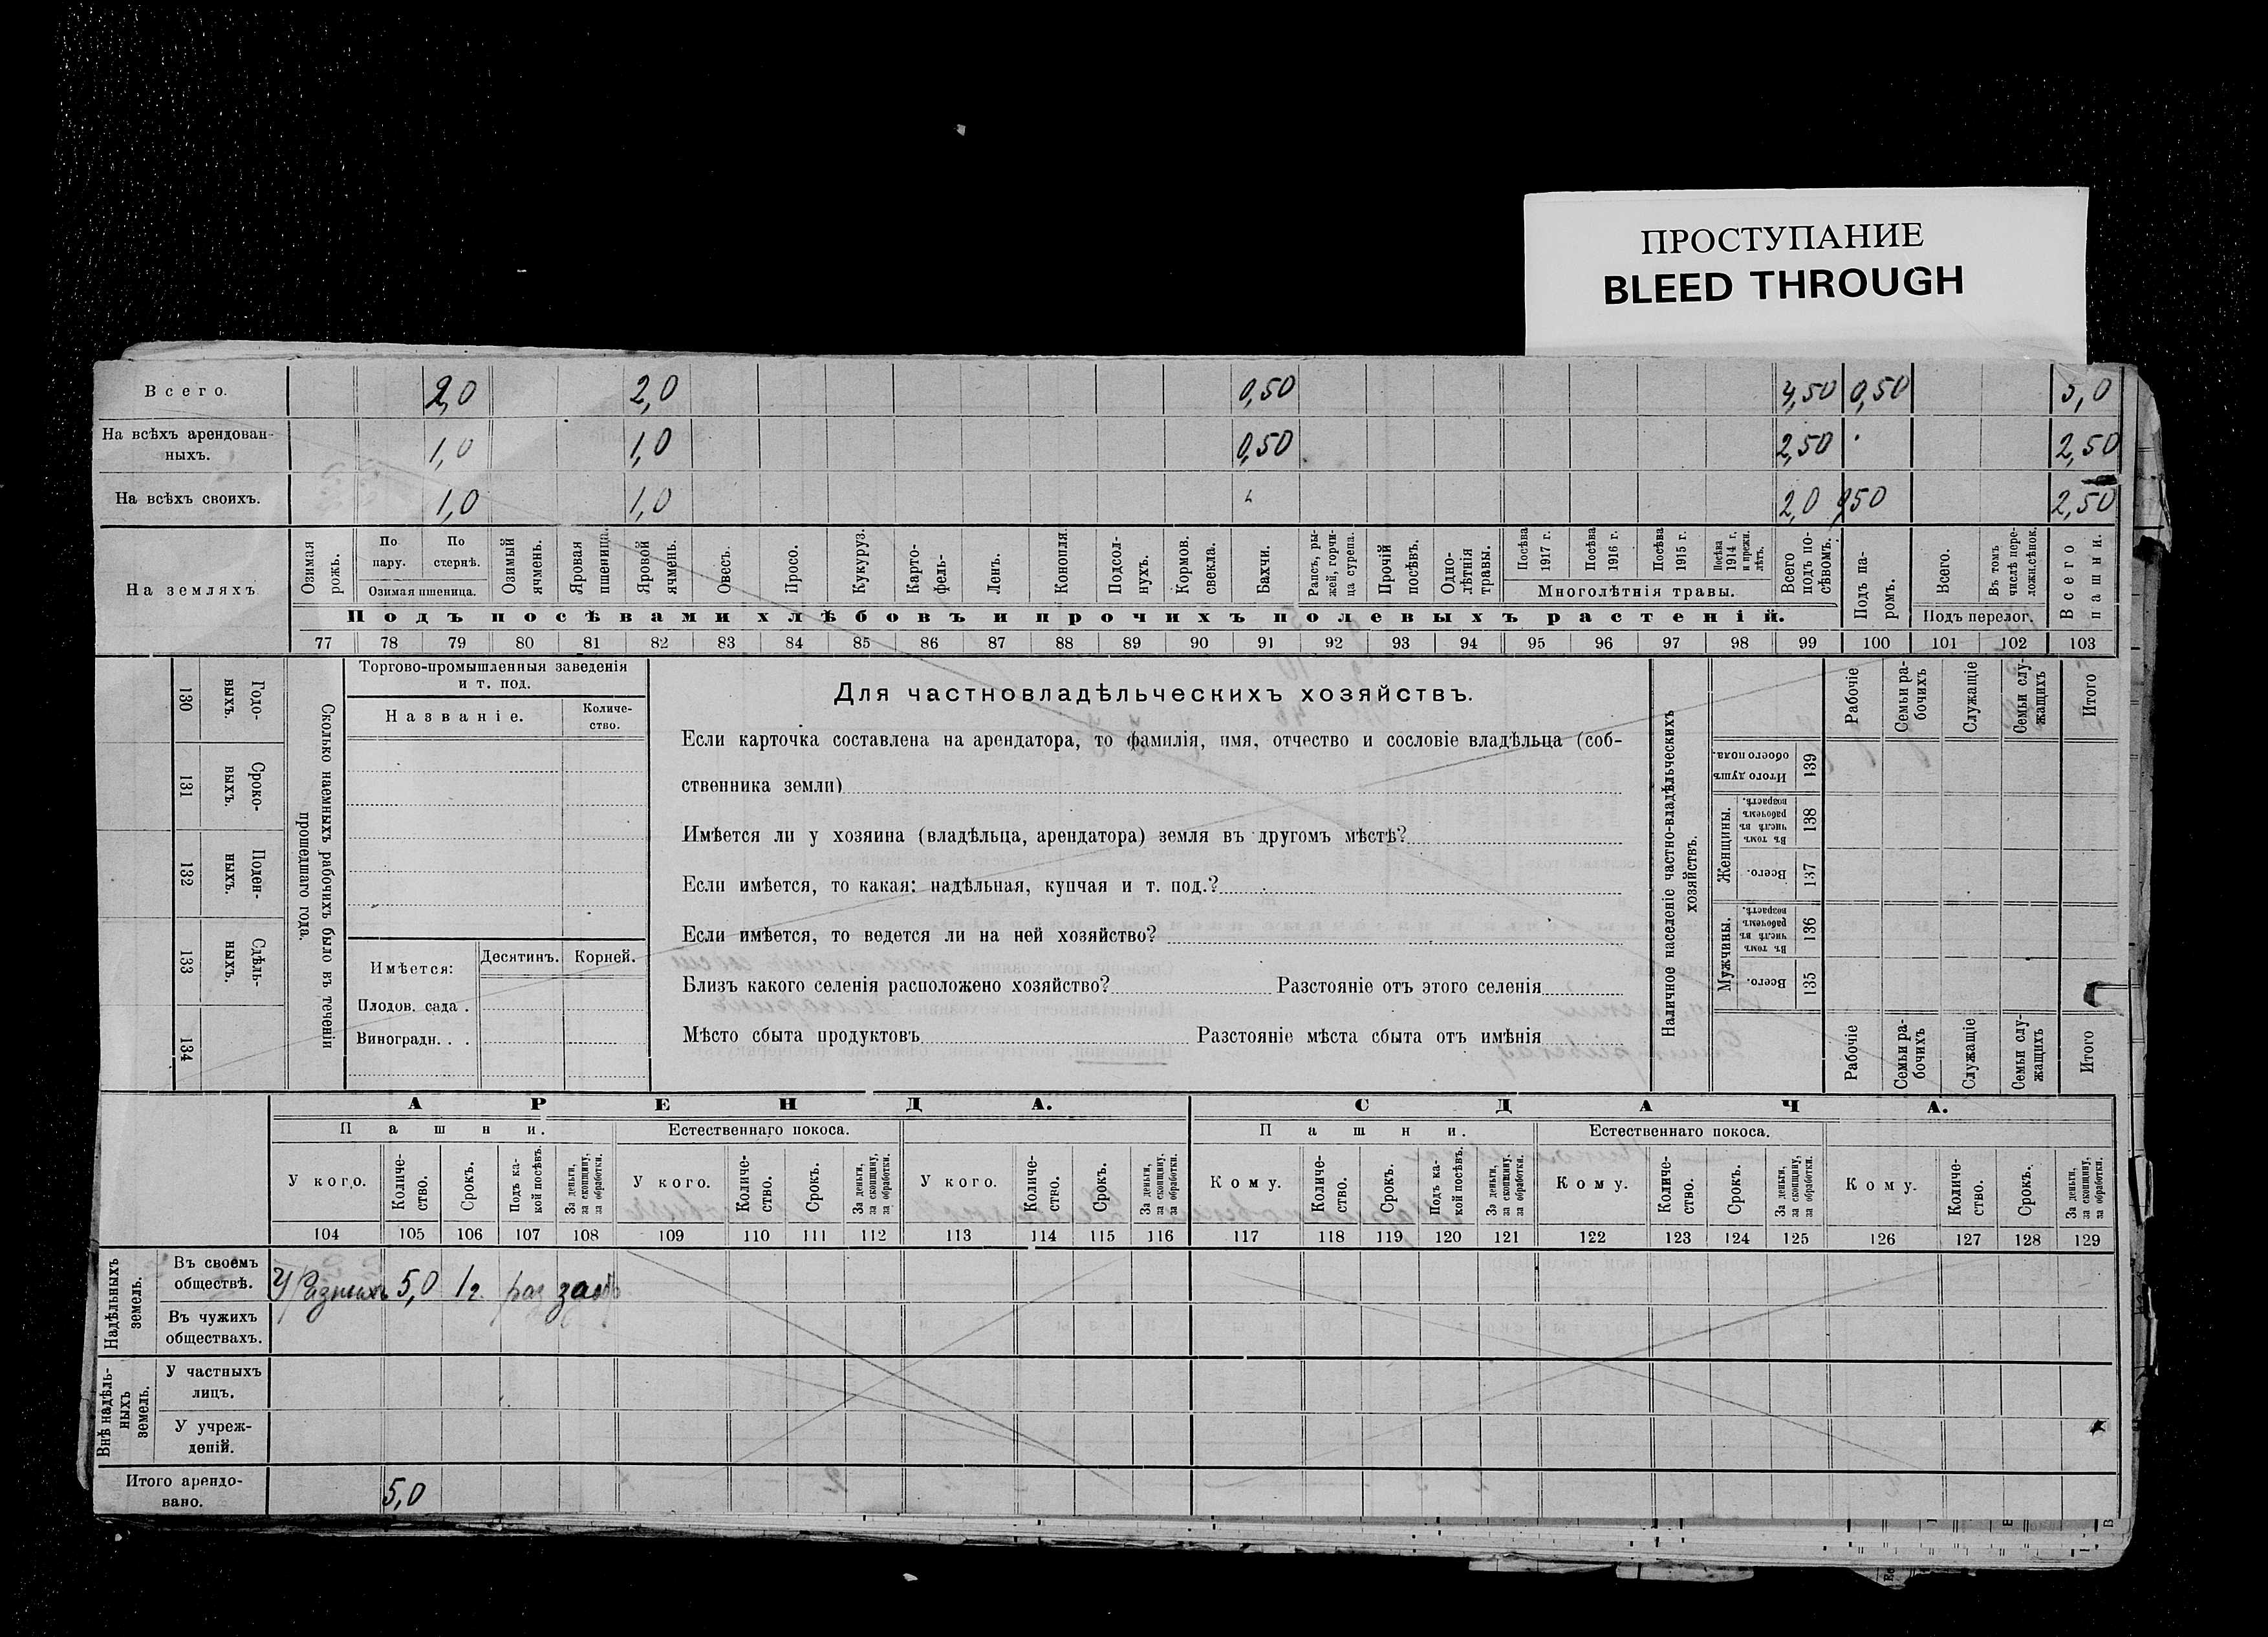 ПРОСТУПАНИЕ
BLEED THROUGH
Всего. 2,0 2,0 0,50 4,50 0,50 5,0
На всѣхъ арендован-
ныхъ. 1,0 1,0 0,50 2,50 2,50
На всѣхъ своихъ. 1,0 1,0 2,0 0,50 2,50
На земляхъ
Озимая рожь.
По пару.
По стернѣ.
Озимая пшеница.
Озимый ячмень.
Яровая пшеница.
Яровой ячмень.
Овесъ.
Просо.
Кукуруз.
Карто-
фель-
Ленъ.
Конопля
Подсол-
нухъ.
Кормов. свекла.
Бахчи.
Рапсъ, ры-
жей, горчи-
ца сурепа.
Прочій посѣвъ.
Одно-
лѣтнія травы.
Посѣва 1917 г.
Посѣва 1916 г.
Посѣва 1915 г.
Посѣва 1914 г. и прежн. лѣтъ.
Многолѣтнія травы.
Всего подъ по-
сѣвомъ.
Подъ па-
ромъ.
Всего.
Въ томъ числѣ пере-
ложн.сѣнок.
Подъ перелог.
Всего пашни.
Подъ посѣвами хлѣбовъ и прочихъ полевыхъ растеній.
77 78 79 80 81 82 83 84 85 86 87 88 89 90 91 92 93 94 95 96 97 98 99 100 101 102 103
130 Годо-
выхъ.
131 Сроко-
выхъ.
132 Поден-
ныхъ.
133 Сдѣль-
ныхъ.
134
Сколько наемныхъ рабочихъ было въ теченіи
прошедшаго года.
Торгово-промышленныя заведенія
и т. под.
Названіе.
Количе-
ство.
Имѣется:
Десятинъ. Корней.
Плодов. сада .
Виноградн. . .
Для частновладѣльческихъ хозяйствъ.
Если карточка составлена на арендатора, то фамилія, имя, отчество и сословіе владѣльца (соб-
ственника земли)
Имѣется ли у хозяина (владѣльца, арендатора) земля въ другомъ мѣстѣ?
Если имѣется, то какая: надѣльная, купчая и т. под.?
Если имѣется, то ведется ли на ней хозяйство?
Близъ какого селенія расположено хозяйство? Разстояніе отъ этого селенія
Мѣсто сбыта продуктовъ Разстояніе мѣста сбыта отъ имѣнія
Наличное населеніе частно-владѣльческихъ
хозяйствъ.
Рабочіе
Семьи ра-
бочихъ
Служащіе
Семьи слу-
жащихъ
Итого
Итого душъ обоего пола. 139
Женщины.
Въ томъ числѣ въ рабочемъ возрастѣ. 138
Всего. 137
Мужчины.
Въ томъ числѣ въ рабочемъ возрастѣ. 136
Всего. 135
Рабочіе
Семьи ра-
бочихъ
Служащіе
Семьи слу-
жащихъ
Итого
АРЕНДА. СДАЧА.
Пашни. Естественнаго покоса. Пашни. Естественнаго покоса.
У кого.
Количе-
ство.
Срокъ.
Подъ ка-
кой посѣвъ.
За деньги,
за скопщину,
за обработки.
У кого.
Количе-
ство.
Срокъ.
За деньги,
за скопщину,
за обработки.
У кого.
Количе-
ство.
Срокъ.
За деньги,
за скопщину,
за обработки.
Кому.
Количе-
ство.
Срокъ.
Подъ ка-
кой посѣвъ.
За деньги,
за скопщину,
за обработки.
Кому.
Количе-
ство.
Срокъ.
За деньги,
за скопщину,
за обработки.
Кому.
Количе-
ство.
Срокъ.
За деньги,
за скопщину,
за обработки.
104 105 106 107 108 109 110 111 112 113 114 115 116 117 118 119 120 121 122 123 124 125 126 127 128 129
Надѣльныхъ
земель.
Въ своемъ
обществѣ. У Разныхъ 5,0 1 г. раз
Въ чужихъ
обществахъ.
Внѣ надѣль-
ныхъ
земель.
У частныхъ
лицъ.
У учреж-
деній.
Итого арендо-
вано. 5,0